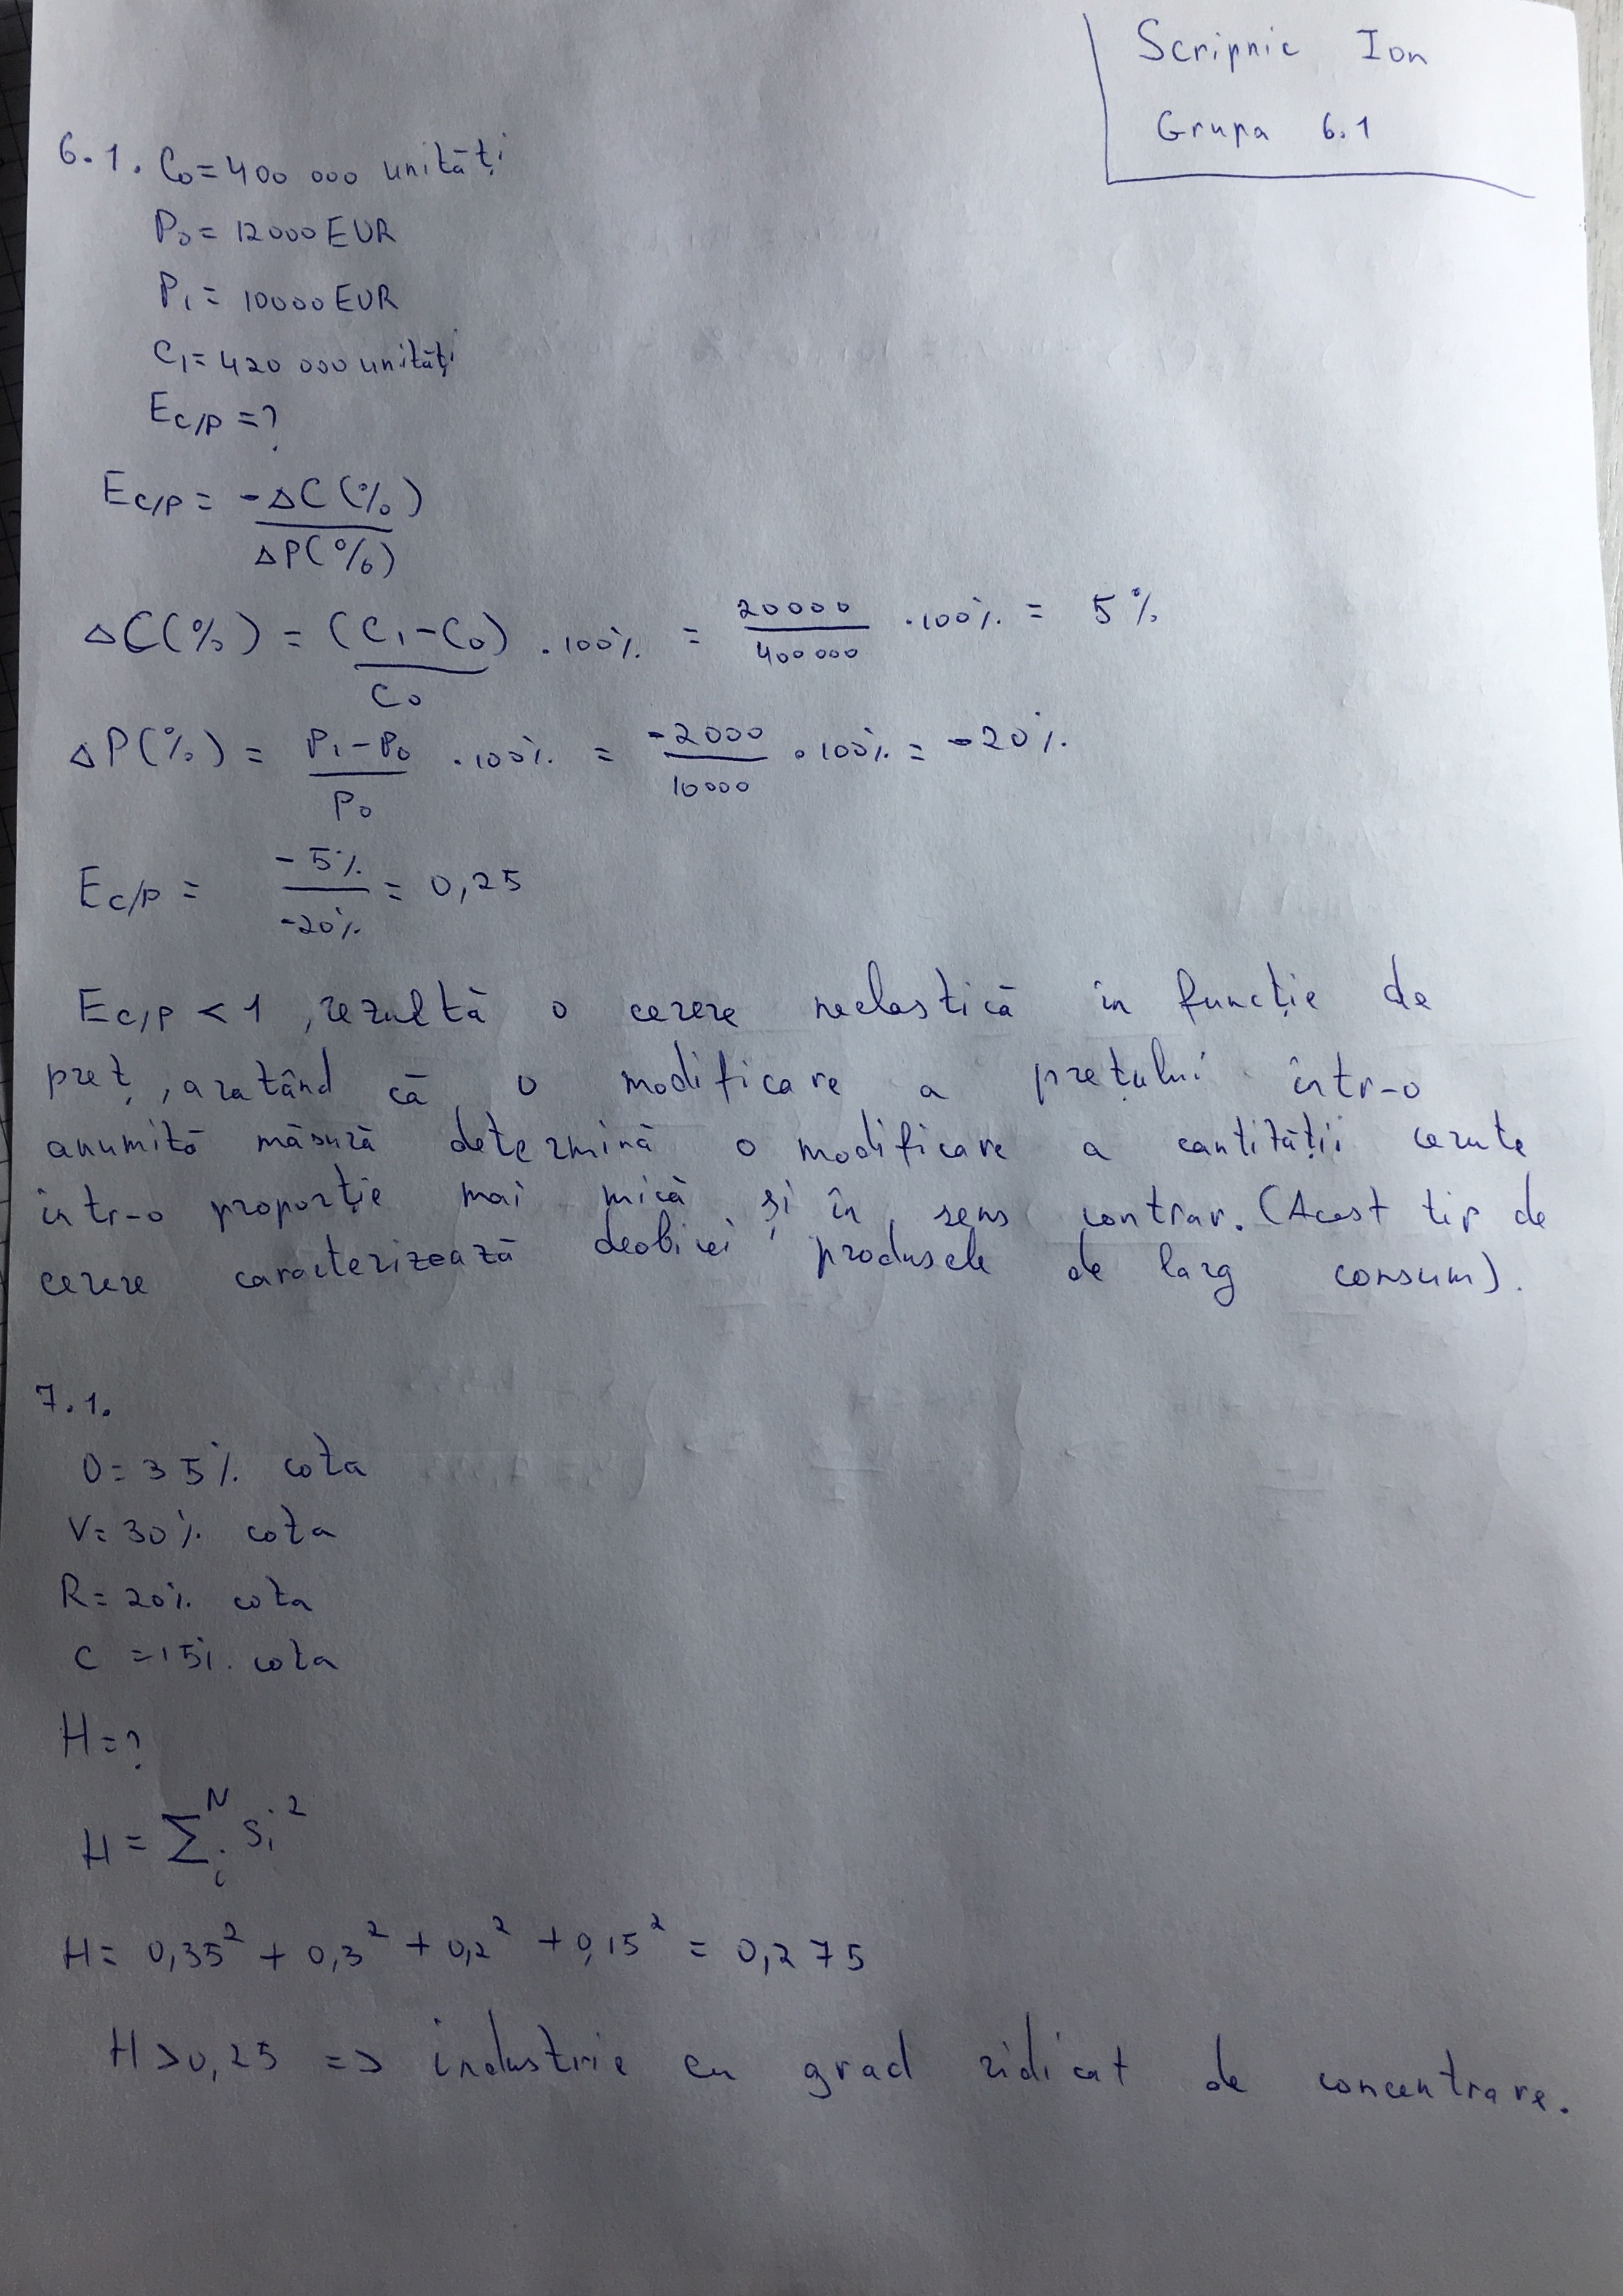 Scripnic Ion
Grupa 6.1
6.1. C₀=400 000 unități
P₀= 12000 EUR
P₁= 10000 EUR
C₁= 420 000 unități
E_{C/P} =?
E_{C/P} = -ΔC(%) / ΔP(%)
ΔC(%) = (C₁-C₀) / C₀ · 100% = 20000 / 400 000 · 100% = 5%
ΔP(%) = P₁-P₀ / P₀ · 100% = -2000 / 10000 · 100% = -20%
E_{C/P} = -5% / -20% = 0,25
E_{C/P} < 1, rezultă o cerere neelastică în funcție de
preț, arătând că o modificare a prețului într-o
anumită măsură determină o modificare a cantității cerute
într-o proporție mai mică și în sens contrar. (Acest tip de
cerere caracterizează deobicei produsele de larg consum).
7.1.
O= 35% cota
V= 30% cota
R= 20% cota
C =15% cota
H=?
H = Σ_i^N S_i²
H= 0,35² + 0,3² + 0,2² + 0,15² = 0,275
H>0,25 => industrie cu grad ridicat de concentrare.